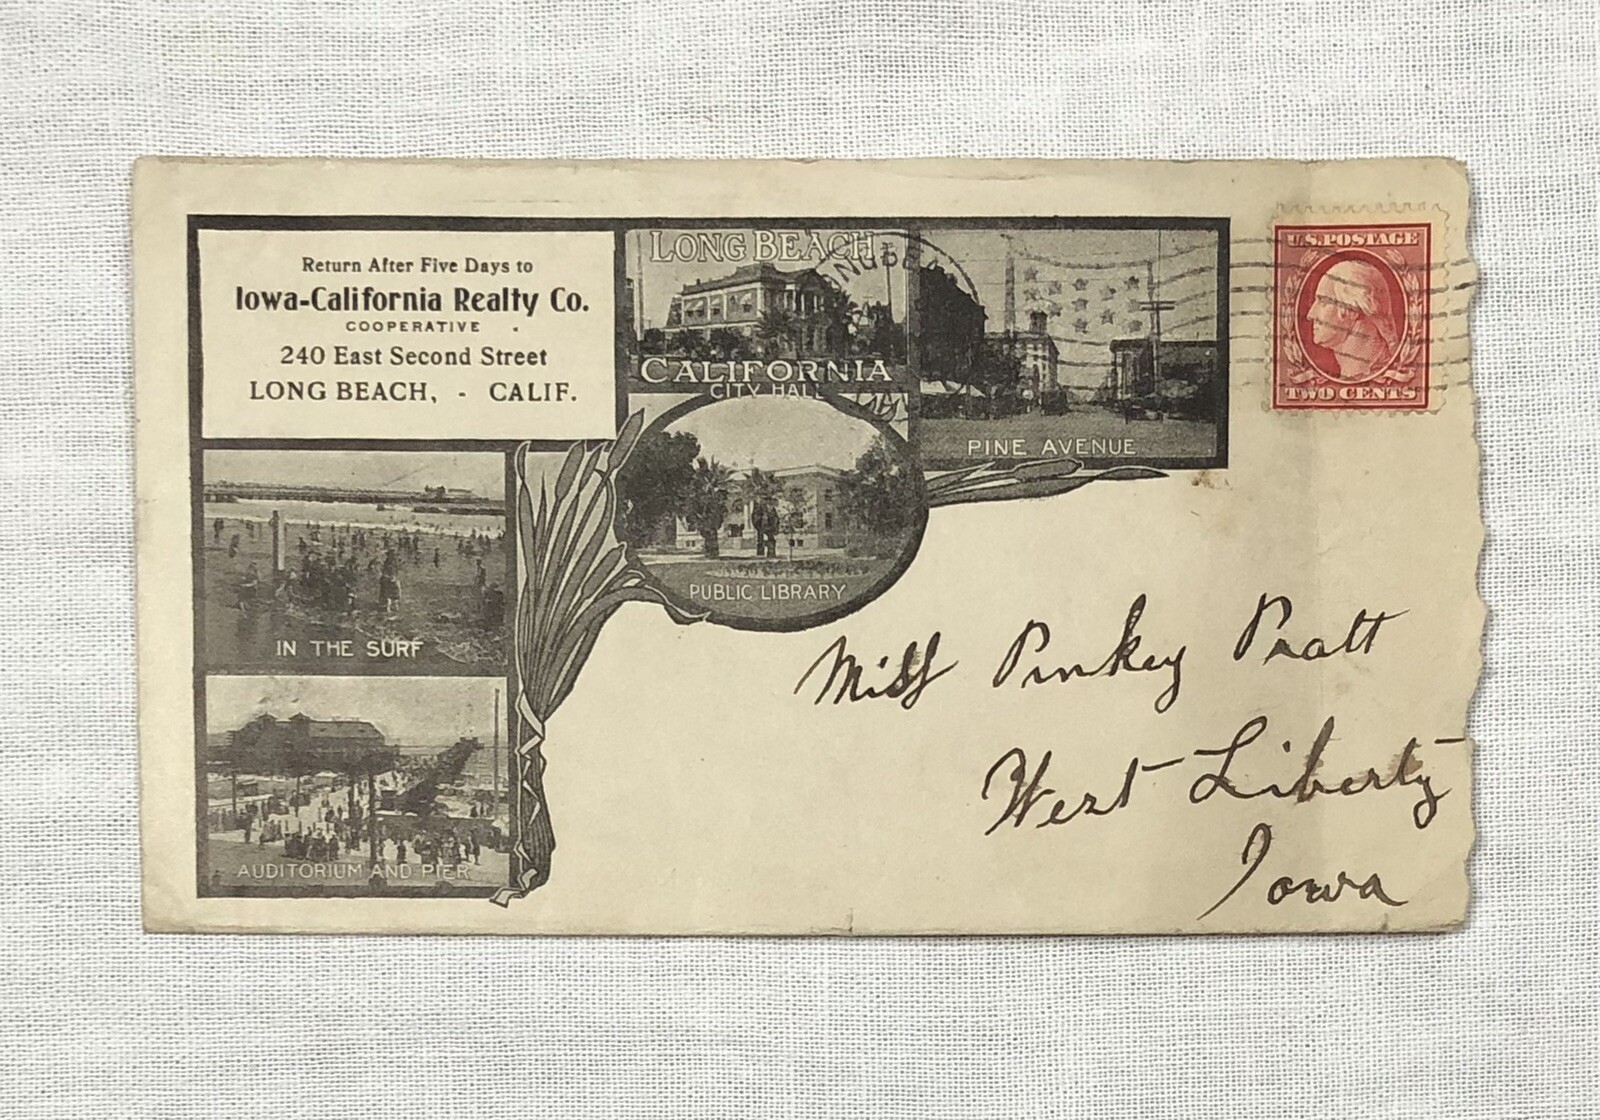 Return After Five Days to
Iowa-California Realty Co.
COOPERATIVE
240 East Second Street
LONG BEACH, - CALIF.
LONG BEACH
CALIFORNIA
CITY HALL
PINE AVENUE
U.S. POSTAGE
TWO CENTS
PUBLIC LIBRARY
IN THE SURF
AUDITORIUM AND PIER
Miss Pinkey Pratt
West Liberty
Iowa